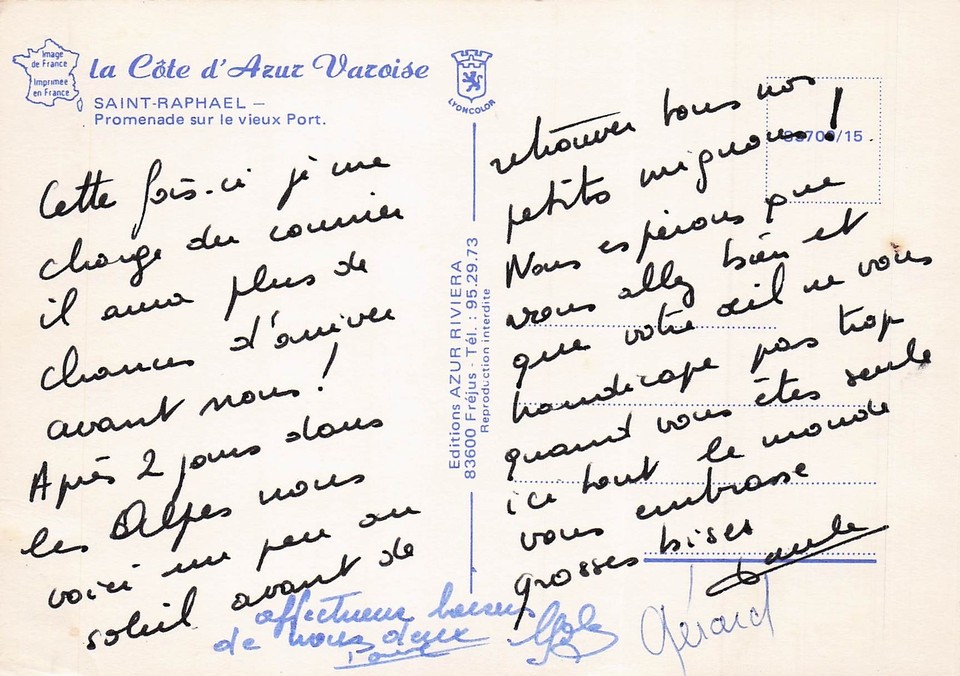 Image
de France
Imprimée
en France
la Côte d'Azur Varoise
SAINT-RAPHAEL —
Promenade sur le vieux Port.
LYONCOLOR
Editions AZUR RIVIERA
83600 Fréjus - Tél. : 95.29.73
Reproduction interdite
/15
Cette fois-ci je me
charge du courrier
il aura plus de
chances d'arriver
avant nous !
Après 2 jours dans
les Alpes nous
voici un peu au
soleil avant de
retrouver tous nos
petits mignons !
Nous espérons que
vous allez bien et
que votre œil ne vous
handicape pas trop
quand vous êtes seule
ici tout le monde
vous embrasse
grosses bises
affectueux baisers
de nous deux
Gérard